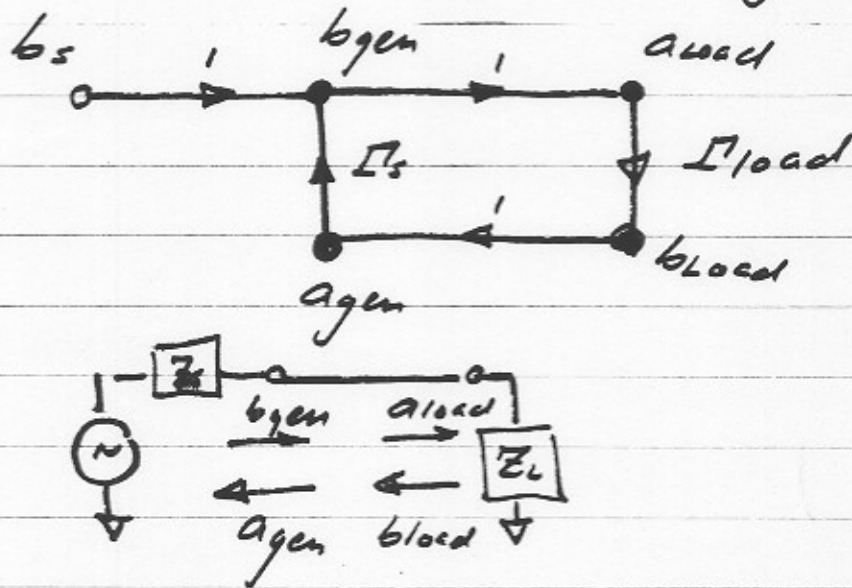 bs 1 bgen 1 aLoad
Γs Γload
1
agen bLoad
Zs
bgen aload
~ ZL
agen bload